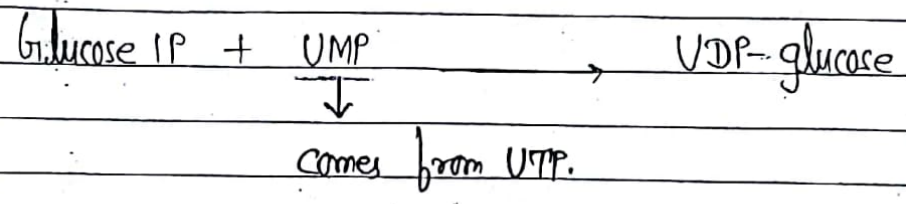 Glucose 1P + UMP → UDP-glucose
↓
Comes from UTP.